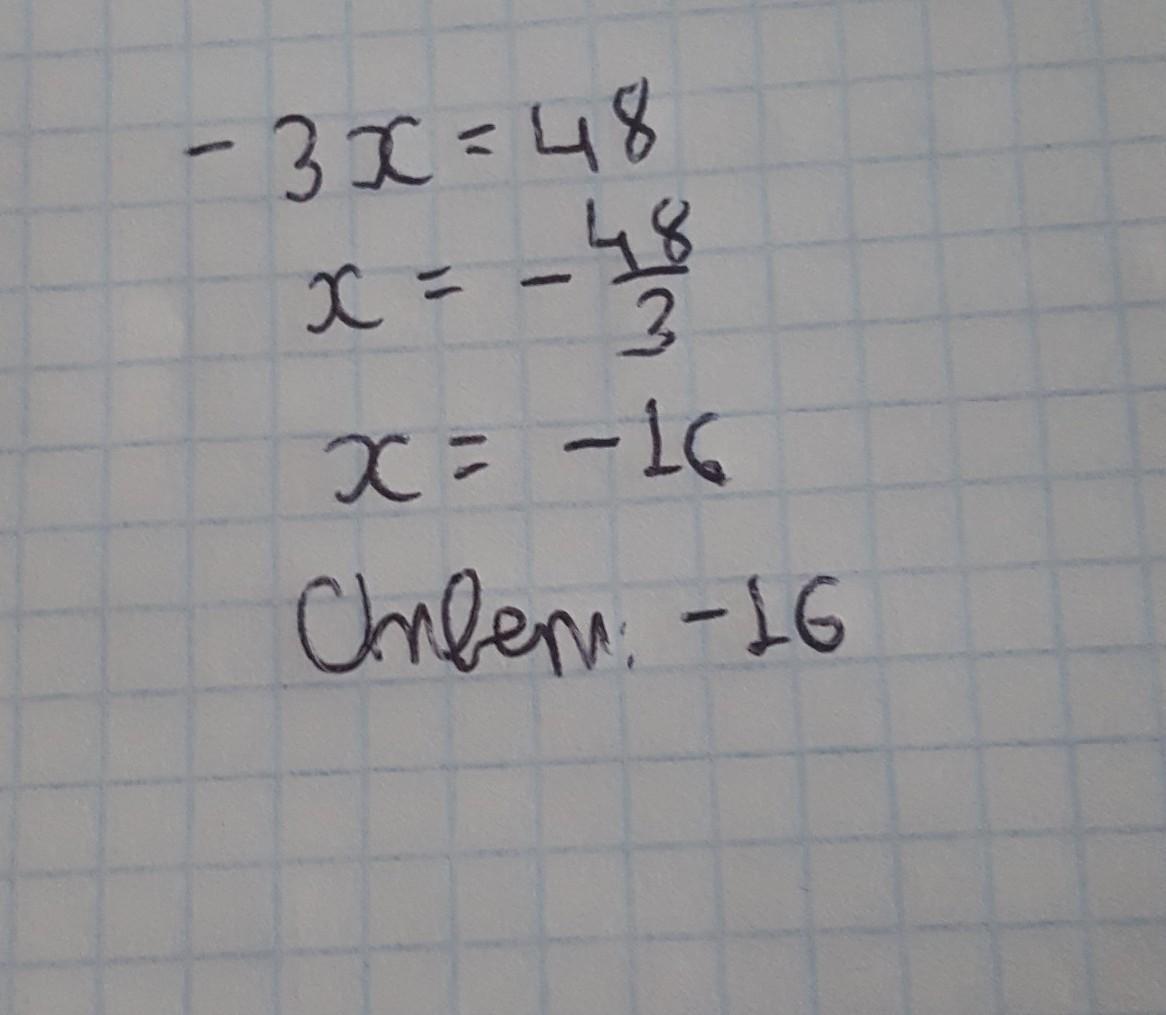 - 3x = 48
x = - 48/3
x = -16
Ответ: -16